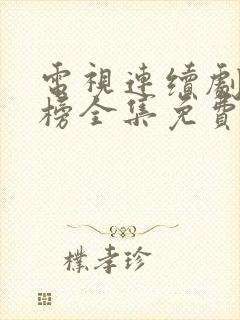 電視連續劇
榜全集免費
樸孝珍